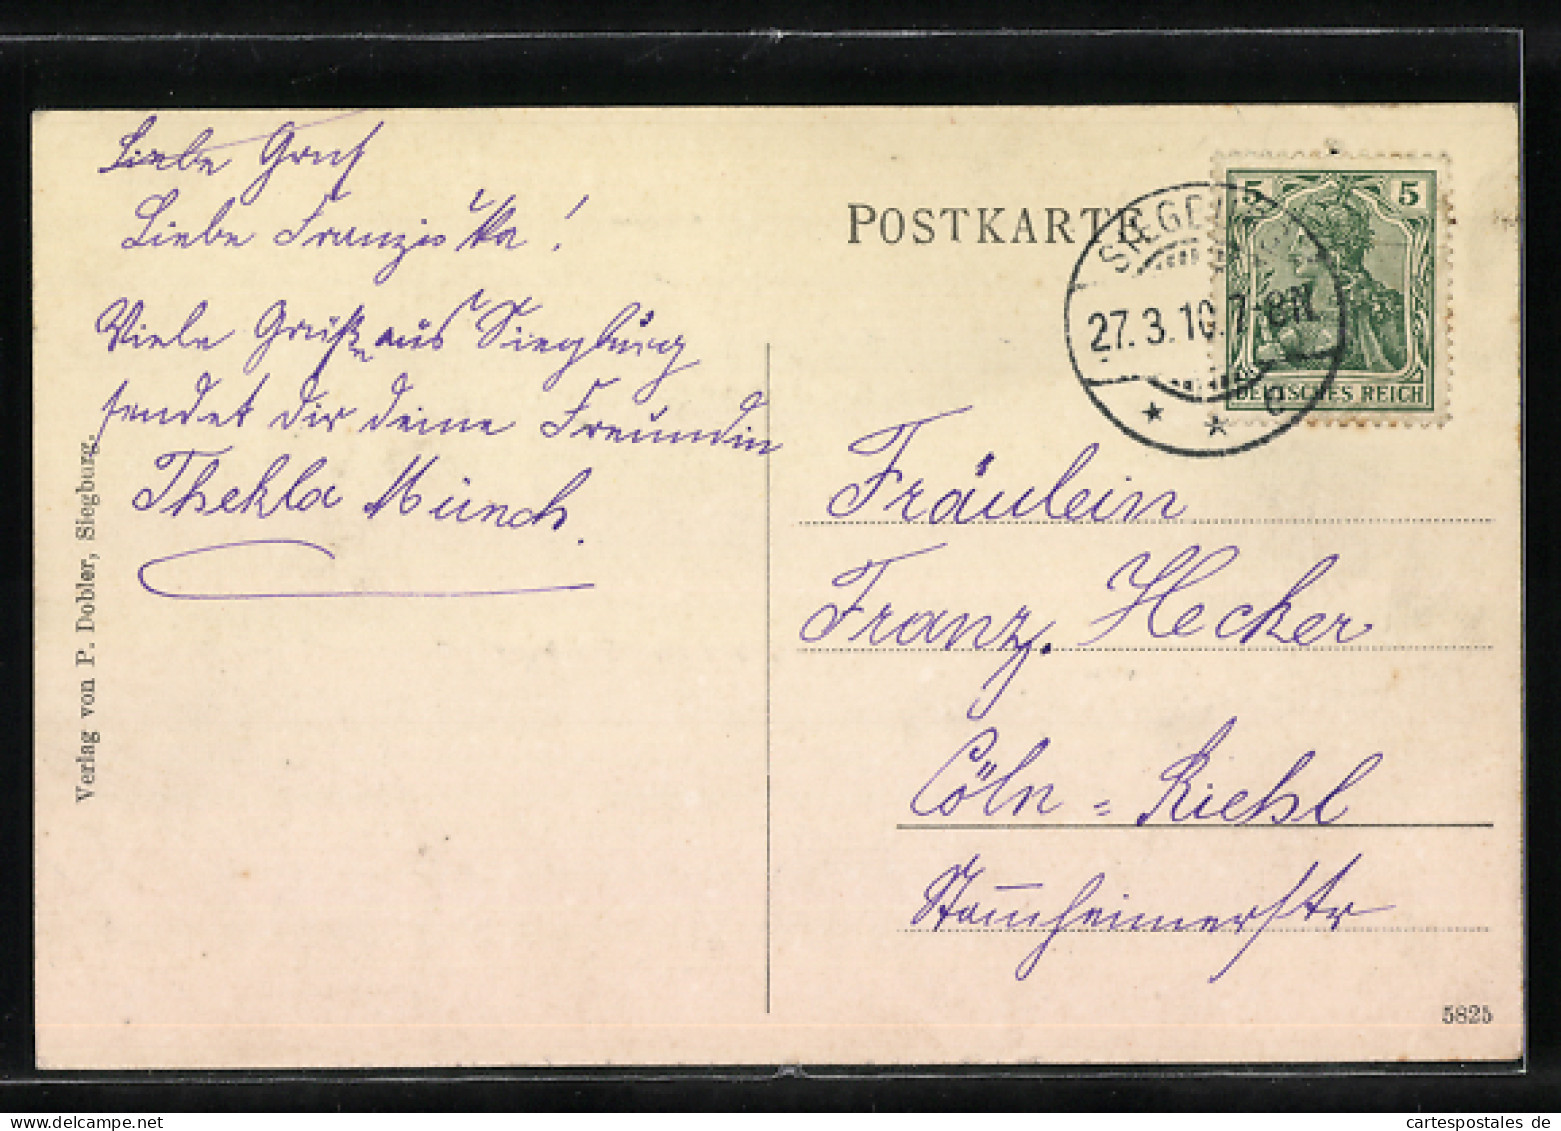 Liebe
Liebe Franziska!
Viele Grüße aus Siegburg
sendet dir deine Freundin
Thekla Münch.
Verlag von P. Dobler, Siegburg.
POSTKARTE
SIEGBURG
27.3.10. 7-8N
* * c
5 5
DEUTSCHES REICH
Fräulein
Franz. Hecker
Cöln = Riehl
Stammheimerstr
5825
cartespostales de